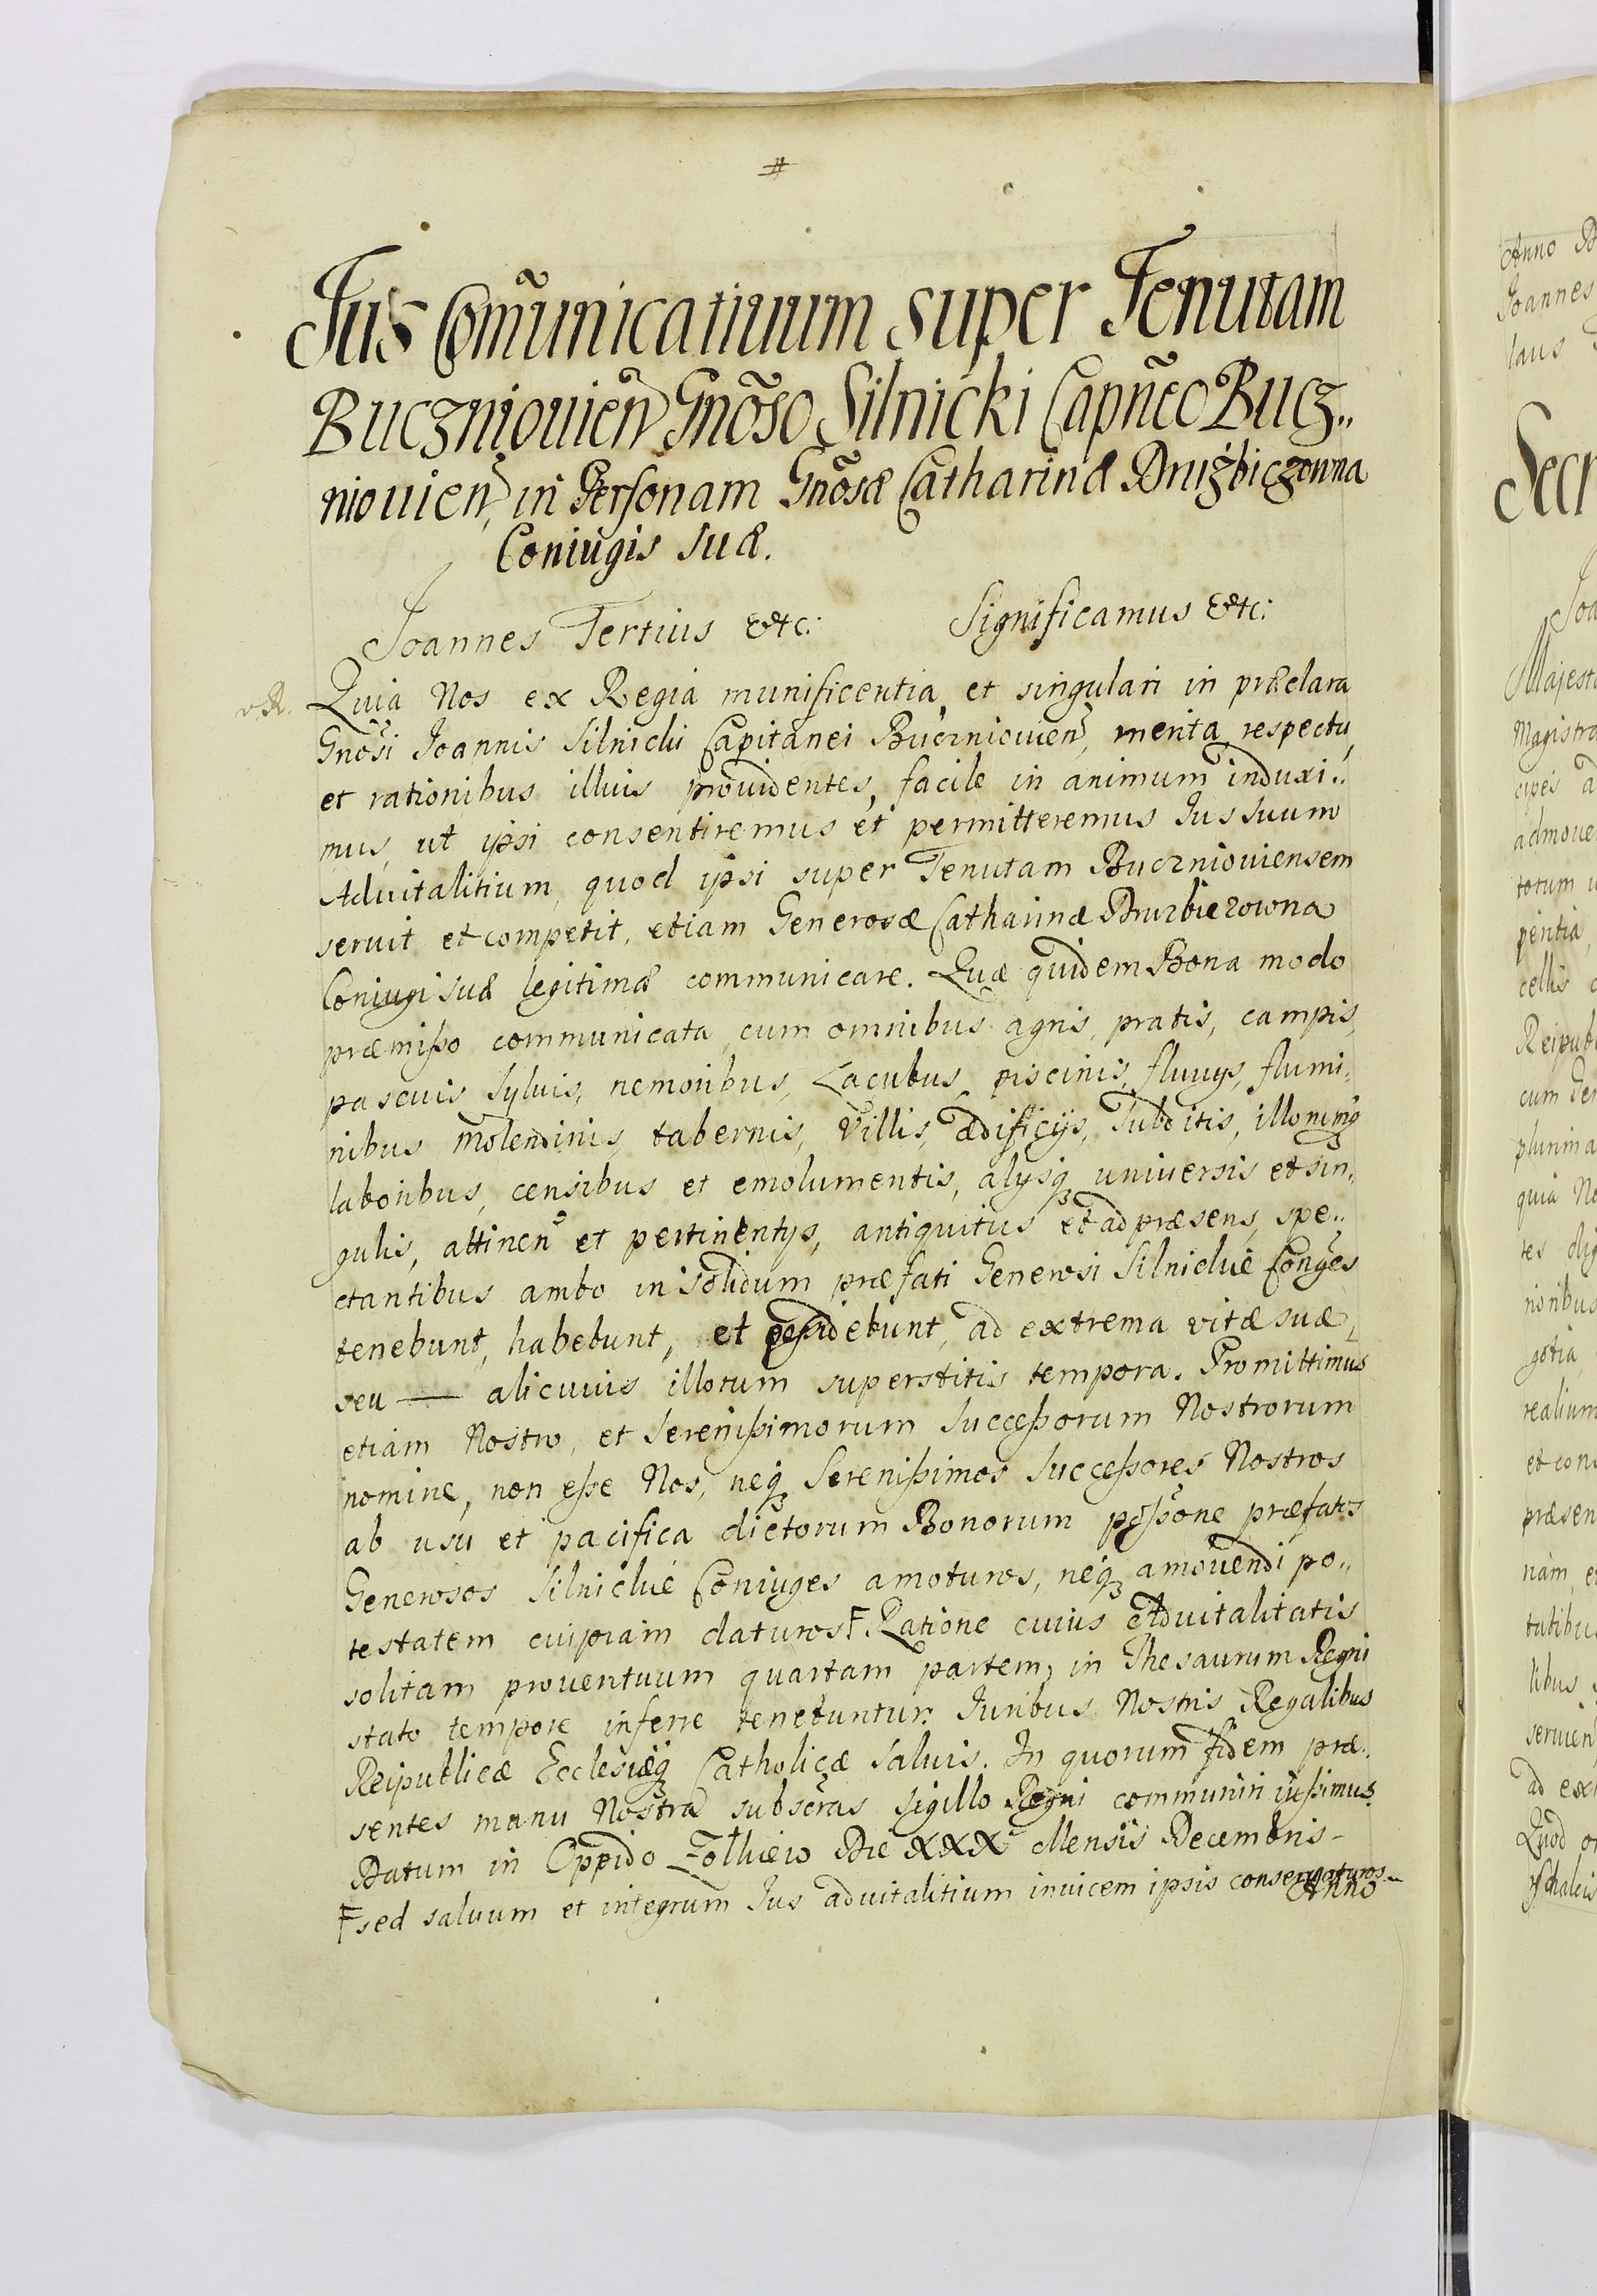 #
Ius Com̃unicatiuum super Tenutam
Buczniouien̄ Gnõso Silnicki Capñeo Bucz„
niouien̄, in Personam Gnõsæ Catharinæ Drużbiczowna
Coniugis suæ.
Joannes Tertius etc: Significamus etc:
Quia Nos ex Regia munificentia, et singulari in præclara
Gnõsi Joannis Silnicki Capitanei Buczniouien̄, merita respectu,
et rationibus illius prouidentes, facile in animum induxi„
mus, ut ipsi consentiremus et permitteremus Ius suum
Aduitalitium, quod ipsi super Tenutam Buczniouiensem
seruit et competit, etiam Generosæ Catharinæ Druzbiczowna
Coniugi suæ legitimæ communicare. Quæ quidem Bona modo
præmißo communicata, cum omnibus agris, pratis, campis,
pascuis sylvis, nemoribus, Lacubus, piscinis, fluuijs, flumi„
nibus molendinis, tabernis, Villis, ædificijs, Subditis, illorumq̃
laboribus, censibus et emolumentis, alijsq̃ uniuersis et sin„
gulis, attinen̄ et pertinentijs, antiquitus et ad præsens, spe„
ctantibus ambo in solidum præfati Generosi Silnickie Conges
tenebunt, habebunt, et poßidebunt, ad extrema vitæ suæ,
seu — alicuius illorum superstitis tempora. Promittimus
etiam Nostro, et Serenißimorum Succeßorum Nostrorum
nomine, non eße Nos, neq̃ Serenißimos Succeßores Nostros
ab usu et pacifica dictorum Bonorum pßẽone præfatos
Generosos Silnickie Coniuges amoturos, neq̃ amouendi po„
testatem cuipiam daturos F. Ratione cuius Aduitalitatis
solitam prouentuum quartam partem, in Thesaurum Regni
stato tempore inferre tenebuntur. Iuribus Nostris Regalibus
Reipublicæ Ecclesiæq̃ Catholicæ saluis. In quorum fidem præ„
sentes manu Nostra subscras Sigillo Regni communiri iußimus.
Datum in Oppido Zołkiew Die XXX Mensis Decembris–
Anno
F sed saluum et integrum Ius aduitalitium inuicem ipsis conseruaturos–
Anno
Joannes
laus
Secr
Joa
Majest
Magistra
cipes
admoue
totum
peritia,
cellis
Reipubl
cum Ger
plurima
quia No
tes
noribus
gotia,
realium
et con
præsen
nam, e
tutibu
libus
seruien
ad ex
Quod